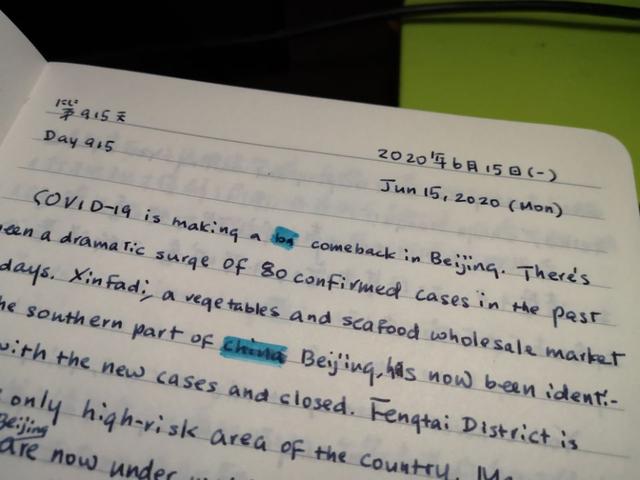 第915天
Day 915
2020年6月15日(一)
Jun 15, 2020 (Mon)
COVID-19 is making a comeback in Beijing. There's
een a dramatic surge of 80 confirmed cases in the past
days. Xinfadi, a vegetables and seafood wholesale market
he southern part of china Beijing, has now been identi-
with the new cases and closed. Fengtai District is
only high-risk area of the country.
Beijing
are now under